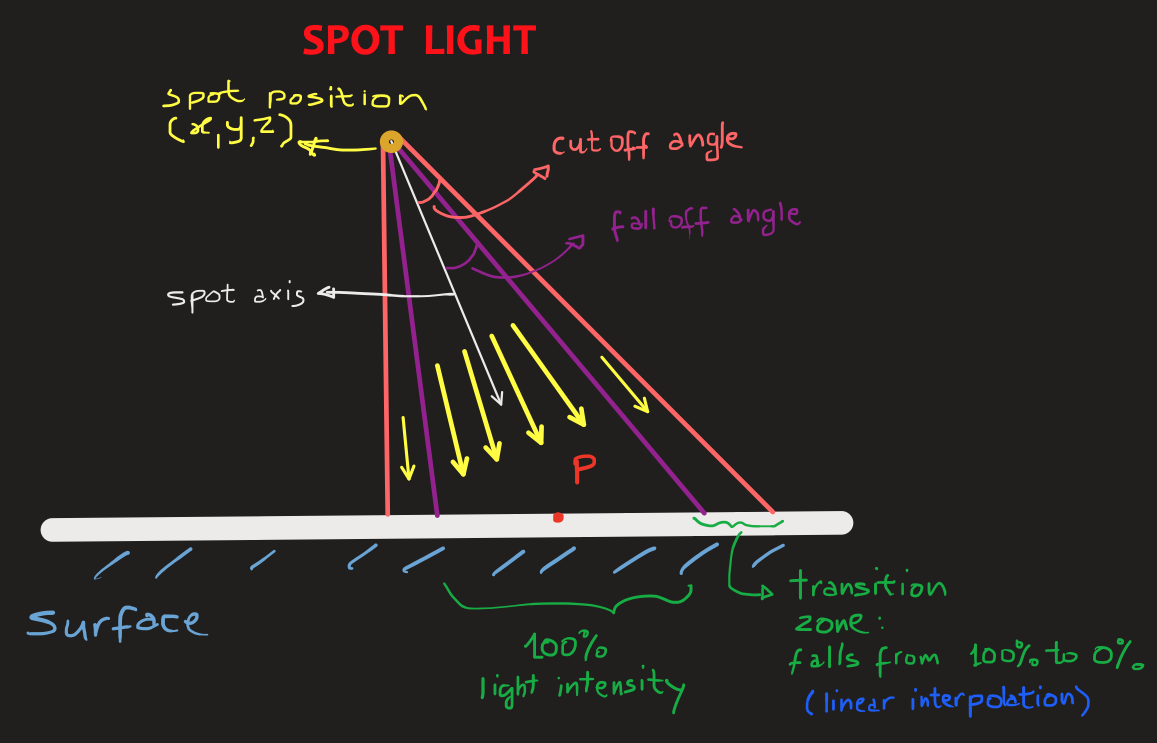 SPOT LIGHT
spot position
(x,y,z)
cut off angle
fall off angle
spot axis
P
Surface
100%
light intensity
transition
zone:
falls from 100% to 0%
(linear interpolation)